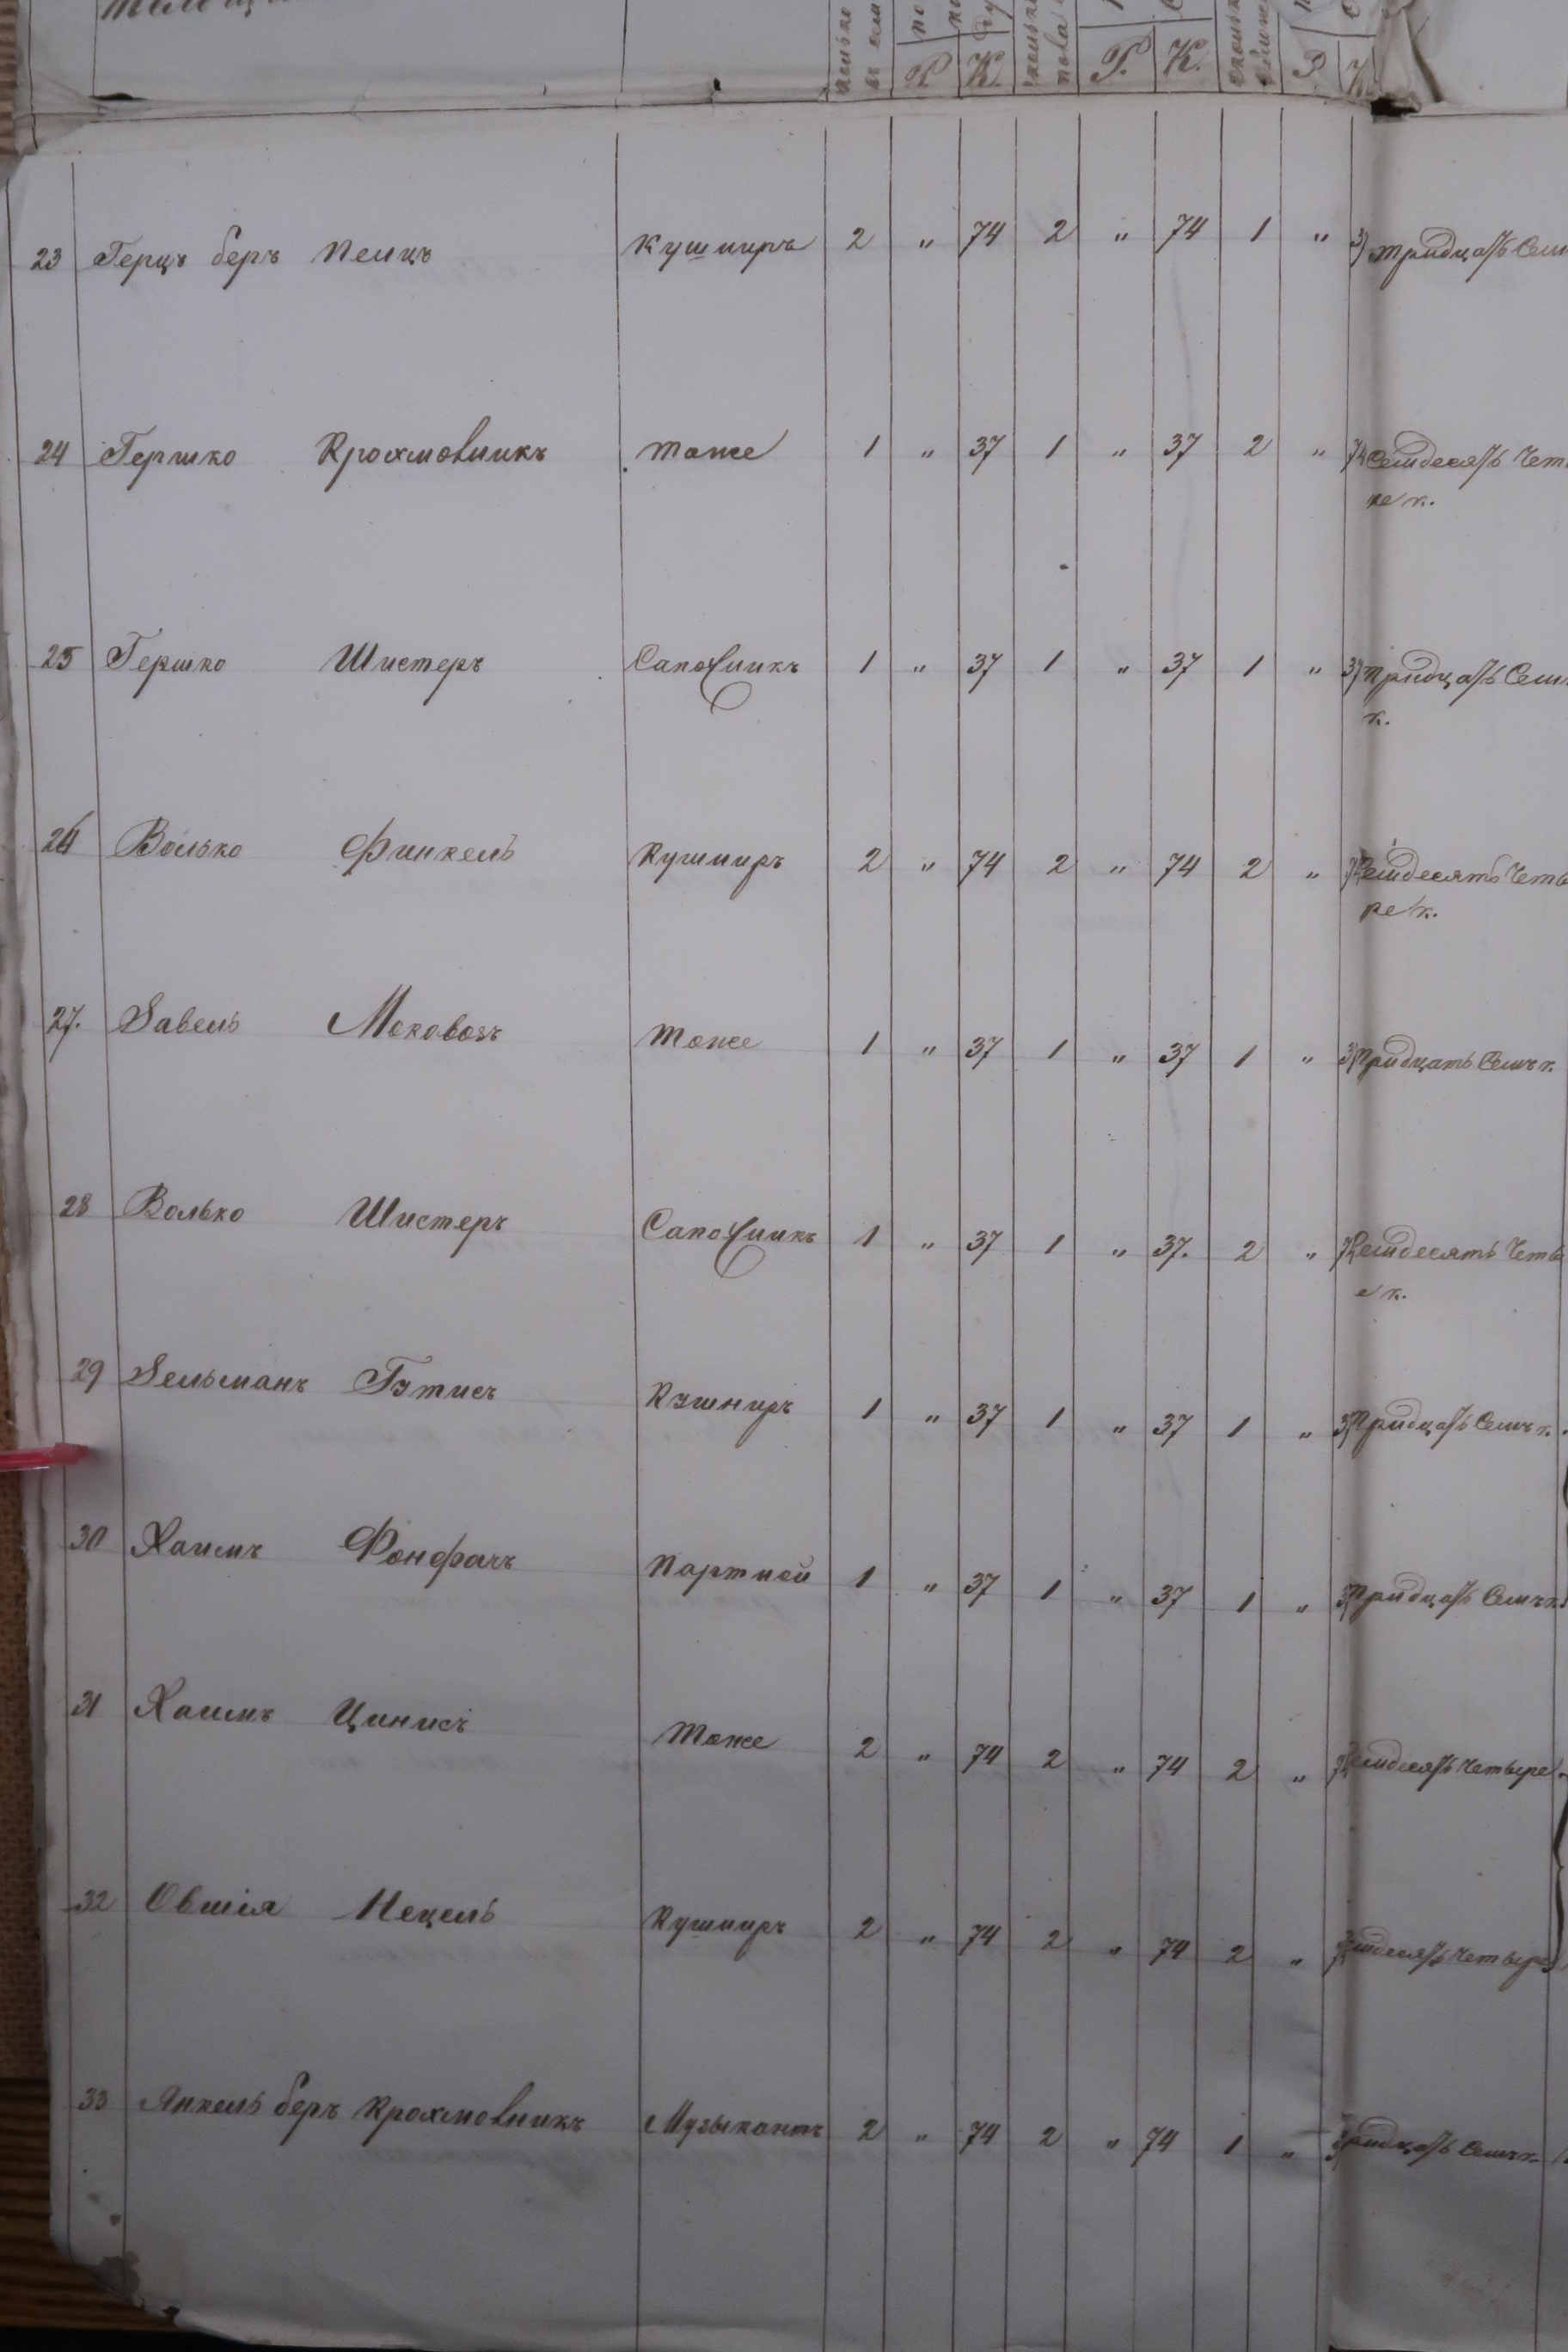 Р. К. Р. К. Р. К.
23 Герцъ беръ Пелцъ Кушниръ 2 " 74 2 " 74 1 " 37 тридцать Сем
24 Гершко Крохмовникъ тоже 1 " 37 1 " 37 2 " 74 Семдесять Чет
ре к.
25 Гершко Шистеръ Сапожникъ 1 " 37 1 " 37 1 " 37 тридцать Сем
к.
26 Волько Финкель Кушниръ 2 " 74 2 " 74 2 " 74 Семдесять Четы
ре к.
27. Завель Моковозъ тоже 1 " 37 1 " 37 1 " 37 тридцать Семъ к.
28 Волько Шистеръ Сапожникъ 1 " 37 1 " 37. 2 " 74 Семдесять Четы
е к.
29 Зельманъ Гутисъ Кушниръ 1 " 37 1 " 37 1 " 37 тридцать Семъ к.
30 Хаимъ Фонфачъ Партной 1 " 37 1 " 37 1 " 37 тридцать Семъ к.
31 Хаимъ Цинисъ тоже 2 " 74 2 " 74 2 " 74 Семдесять четыре
32 Овшія Нецель Кушниръ 2 " 74 2 " 74 2 " 74 Семдесять четыре
33 Янкель беръ Крохмовникъ Музыкантъ 2 " 74 2 " 74 1 " 37 тридцать Семъ к.